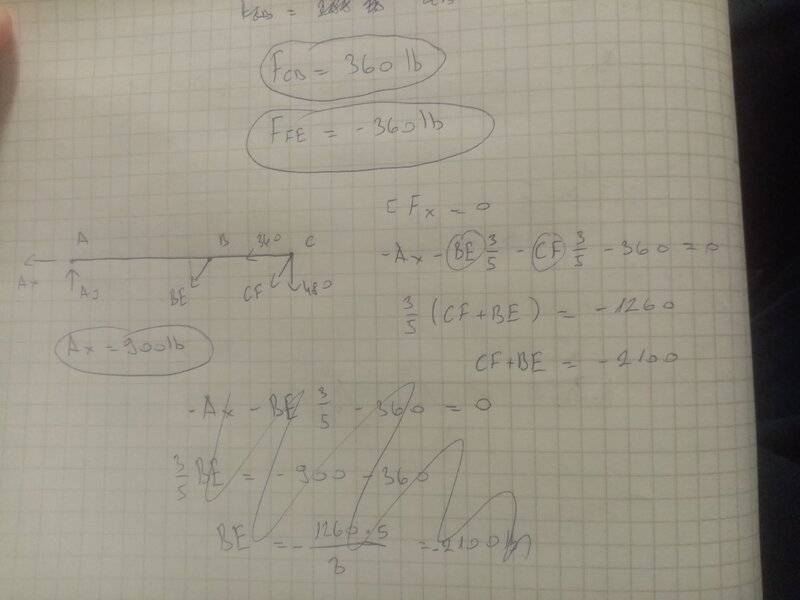 F_CB = 360 lb
F_FE = -360 lb
Σ F_x = 0
A B 360 C
Ax Ay BE CF 480
-Ax - BE 3/5 - CF 3/5 - 360 = 0
3/5 (CF + BE) = -1260
Ax = 900 lb
CF + BE = -2100
-Ax - BE 3/5 - 360 = 0
3/5 BE = -900 - 360
BE = - 1260 · 5 / 3 = -2100 lb